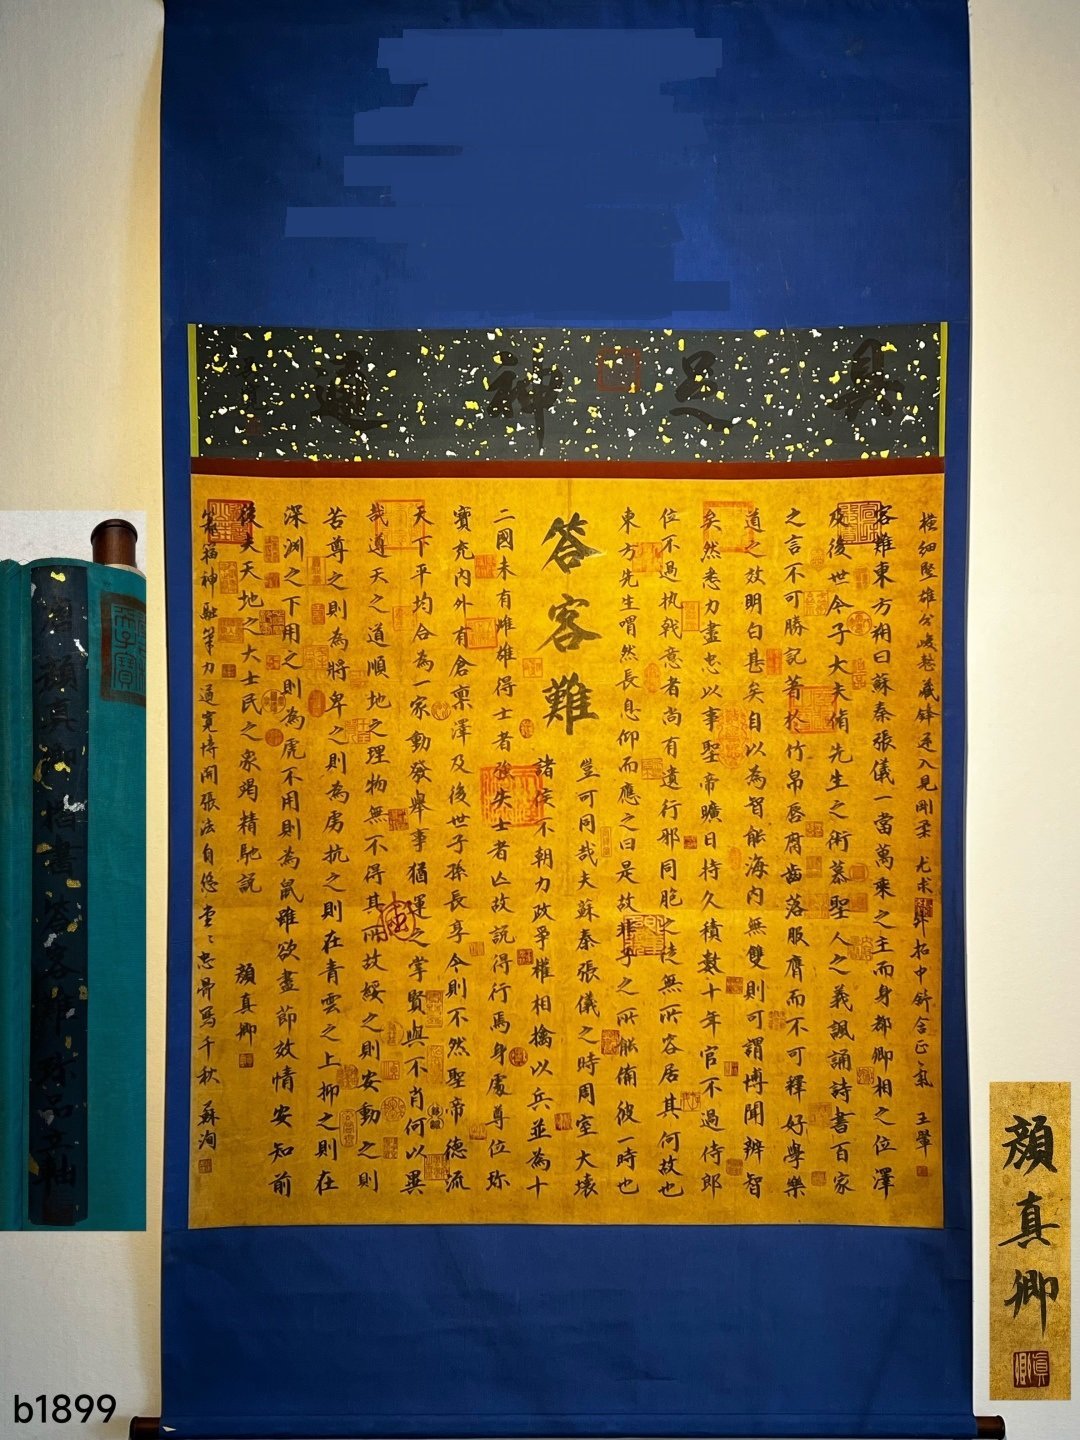 具足神通
橫細竪雄分峻整藏鋒逆入見剛柔
中舒含正氣 王肇
客難東方朔曰蘇秦張儀一當萬乘之主而身都卿相之位澤
及後世今子大夫脩先生之術慕聖人之義諷誦詩書百家
之言不可勝記著於竹帛唇腐齒落服膺而不可釋好學樂
道之效明白甚矣自以為智能海內無雙則可謂博聞辨智
矣然悉力盡忠以事聖帝曠日持久積數十年官不過侍郎
位不過执戟意者尚有遺行邪同胞之徒無所容居其何故也
東方先生喟然長息仰而應之曰是故非子之所能備彼一時也
豈可同哉夫蘇秦張儀之時周室大壞
答客難
諸侯不朝力政爭權相擒以兵並為十
二國未有雌雄得士者強失士者亡故說得行焉身處尊位珎
寶充內外有倉禀澤及後世子孫長享今則不然聖帝德流
天下平均合為一家動發舉事猶運之掌賢與不肖何以異
哉遵天之道順地之理物無不得其所故綏之則安動之則
苦尊之則為將卑之則為虜抗之則在青雲之上抑之則在
深渊之下用之則為虎不用則為鼠雖欲盡節效情安知前
後夫天地之大士民之衆竭精馳説
顏真卿
神融筆力遒寬博開張法自悠堂〻忠骨寫千秋 蘇洵
唐顏真卿楷書答客難珎品立軸
顏真卿
b1899